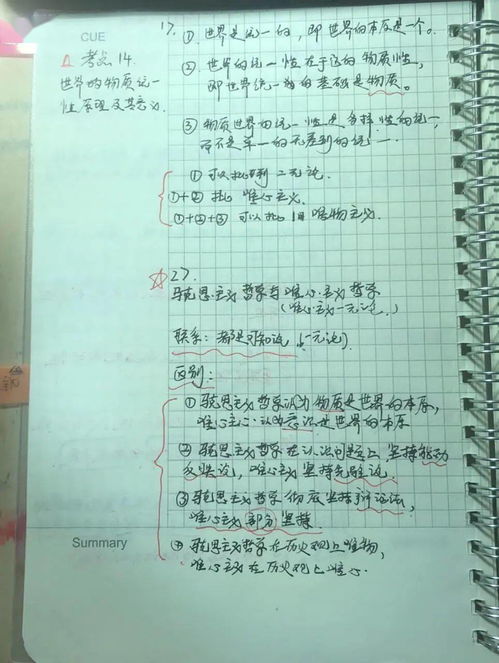 CUE
△ 考点14.
世界的物质统一
性原理及其意义.
17.
①. 世界是统一的, 即世界的本原是一个。
②. 世界的统一性在于它的物质性,
即世界统一的基础是物质。
③ 物质世界的统一性是多样性的统一,
而不是单一的无差别的统一.
① 可以批判二元论.
①+② 批 唯心主义.
①+②+③ 可以批 旧唯物主义.
☆ 27.
马克思主义哲学与唯心主义哲学
(唯心主义一元论.)
联系: 都是可知论, (一元论)
区别:
① 马克思主义哲学认为物质是世界的本原,
唯心主义认为意识是世界的本原
② 马克思主义哲学在认识问题上坚持能动
反映论, 唯心主义坚持先验论.
③ 马克思主义哲学彻底坚持辩证法,
唯心主义部分坚持.
④ 马克思主义哲学在历史观上唯物,
唯心主义在历史观上唯心.
Summary